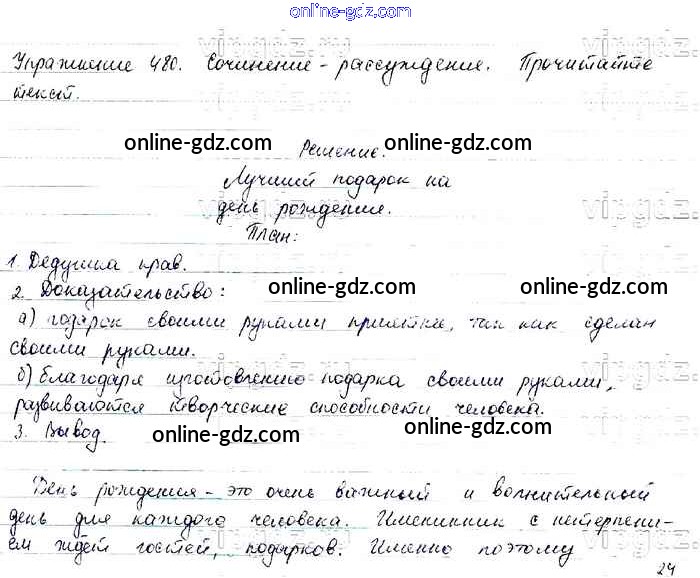 online-gdz.com
Упражнение 480. Сочинение - рассуждение. Прочитайте
текст.
online-gdz.com online-gdz.com
Решение.
Лучший подарок на
день рождения.
План:
1. Дедушка прав.
online-gdz.com online-gdz.com
2. Доказательство:
а) подарок своими руками приятнее, так как сделан
своими руками.
б) благодаря изготовлению подарка своими руками,
развиваются творческие способности человека.
3. Вывод.
online-gdz.com online-gdz.com
День рождения - это очень важный и волнительный
день для каждого человека. Именинник с нетерпени-
ем ждёт гостей, подарков. Именно поэтому
24